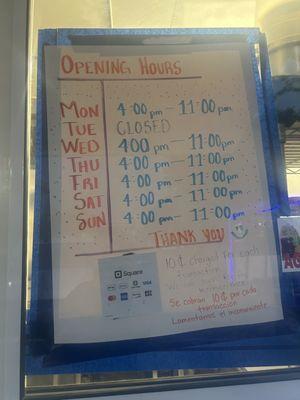 OPENING HOURS
MON 4:00 pm — 11:00 pm
TUE CLOSED
WED 4:00 pm — 11:00 pm
THU 4:00 pm — 11:00 pm
FRI 4:00 pm — 11:00 pm
SAT 4:00 pm — 11:00 pm
SUN 4:00 pm — 11:00 pm
THANK YOU
Square
VISA
10¢ charged for each
transaction
Se cobran 10¢ por cada
transacción
Lamentamos el inconveniente